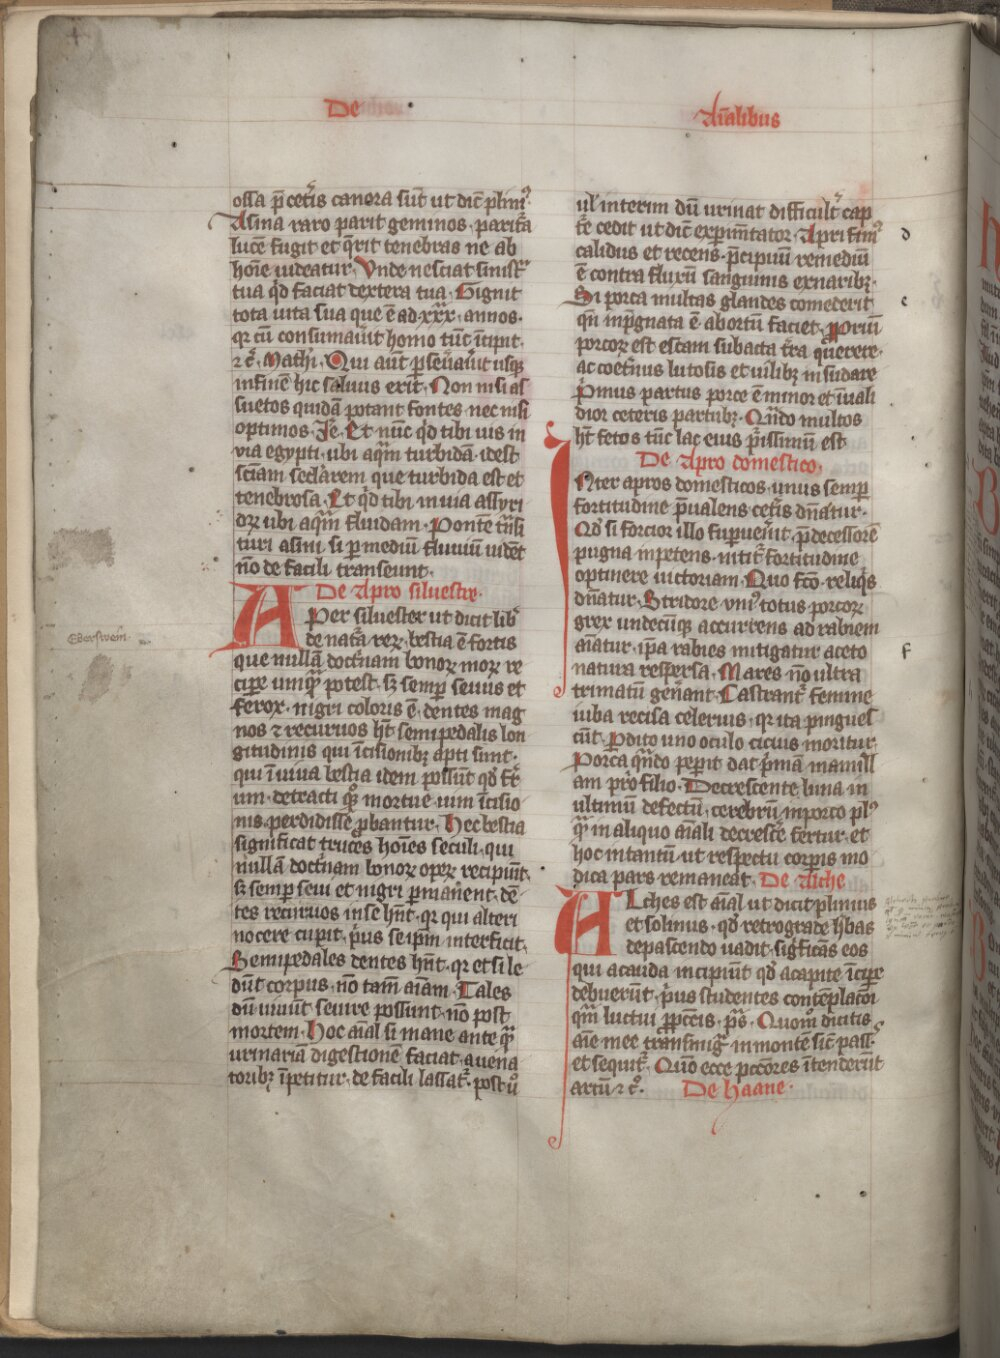 De
Aīalibus
ossa p̄ cet̄is canora sūt ut dic̄ plini⁹
Asina raro parit geminos. paritᷓa
lucē fugit et q̄rit tenebras ne ab
hoīe uideatur. Vnde nesciat sinistᷓ
tua qᷘd faciat dextera tua. Gignit
tota uita sua que ē ad xxx. annos.
qꝛ cū consumau̾it homo tūc īcipit.
⁊ cᷓ. Mathi. Qui aūt p̱seu̾au̾it usqꝫ
in finē hic saluus erit. Non nisi as
suetos quidā potant fontes nec nisi
optimos. Je. Et nūc qᷘd tibi uis in
via egypti. ubi aqᷓm turbidā. idest
sciam̄ seclarem que turbida est et
tenebrosa. Et qᷘd tibi in uia assyri
oꝝ ubi aqᷓm fluidam. Pontē trāsi
turi asini. si p̱ mediū fluuiū uidēt
nō de facili transeunt.
De Apro siluestre.
APer siluester ut dicit lib̾
de nat̾a reꝝ. bestia ē fortis
que nullā doct̾nam bonoꝝ moꝝ re
cip̱e umqᷓ potest. sꝫ semp̱ seuus et
ferox. nigri coloris ē. dentes mag
nos ⁊ recuruos hn̄t semipedalis lon
gitudinis qui īcisionibꝫ apti sunt.
qui ī uiua bestia idem possūt qd̾ fr̄
um. detracti qᷘꝫ mortue uim īcisio
nis perdidisse ꝓbantur. Hec bestia
significat truces hoīes seculi. qui
nullā doct̾nam bonoꝝ op̱eꝝ recipiūt.
sꝫ semp̱ seui et nigri p̱manent. dē
tes recuruos in se hn̄t. qꝛ qui alteri
nocere cupit. p̾us se ip̄m interficit.
Semipedales dentes hn̄t. qꝛ etsi le
dūt corpus. nō tam̄ aīam. Tales
dū uiuūt seuire possunt. nō post
mortem. Hoc aīal si mane ante qᷓ
urinariā digestionē faciat. auena
toribꝫ īpetitur. de facili lassat̾. post ū
Eberswein.
ul̾ interim dū urinat difficult̾ cap
t̾. cedit ut dic̄ exp̱im̄tator. Apri fim⁹
calidus et recens. p̄cipuū remediū
ē contra fluxū sanguinis ex naribꝫ.
Si porca multas glandes comederit
qn̄ inp̄gnata ē abortū faciet. Propriū
porcoꝝ est escam subacta t̾ra querere.
ac coet̾nus lutosis et uilibꝫ insudare
P̾mus partus porce ē minor et iuali
dior ceteris partubꝫ. Qn̄do multos
hꝫ fetos tūc lac eius p̱issimū est
De Apro domestico.
INter apros domesticos. unus semp̱
fortitudine p̄ualens cet̾is dn̄atur.
Qd̾ si forcior illo sup̱uen̾it. p̄decessorē
pugna inpetens. nitit̾ fortitudine
optinere uictoriam. Quo fc̄o. reliqᷘs
dn̄atur. Stridore vni⁹ totus porcoꝝ
grex undecūqꝫ accurrens ad rabiem
aīatur. ip̄a rabies mitigatur aceto
natura respersa. Mares nō ultra
trimatū gen̾ant. Castrant̾ femine
iuba recisa celerius. qꝛ ita pingues
cūt. P̱dito uno oculo cicius moritur.
Porca qn̄do pep̱it dat p̾mā mamill
am p̾ro filio. Decrescente luna in
ultimū defectū. cerebrū in porco pl⁹
qᷓ in aliquo aīali decresce̾ fertur. et
hoc in tantū ut respectu corp̱is mo
dica pars remaneat. De Alche
ALches est aīal ut dicit plinius
et solinus. qd̾ retrograde h̾bas
depascendo uadit. sigficās eos
qui acauda incipiūt qd̾ acapite īcip̱e
debuer̄t. p̾us studentes contēplac̄oi
qᷓm luctui ꝓpc̄cis. ps̄. Quom̊ dicitis
aīe mee transmigᷓ in montē sic̄ pass̾.
et sequit̾. Qm̄ ecce pcc̄ores ītenderūt
arcū ⁊ c̾.
De haane.
d
e
f